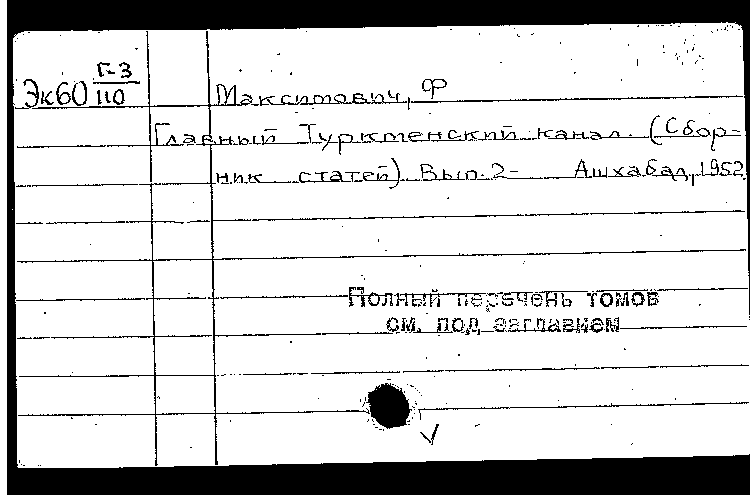 Эк60 Г-3/110
Максимович, Ф
Главный Туркменский канал. (Сбор-
ник статей). Вып. 2- Ашхабад, 1952
Полный перечень томов
см. под заглавием